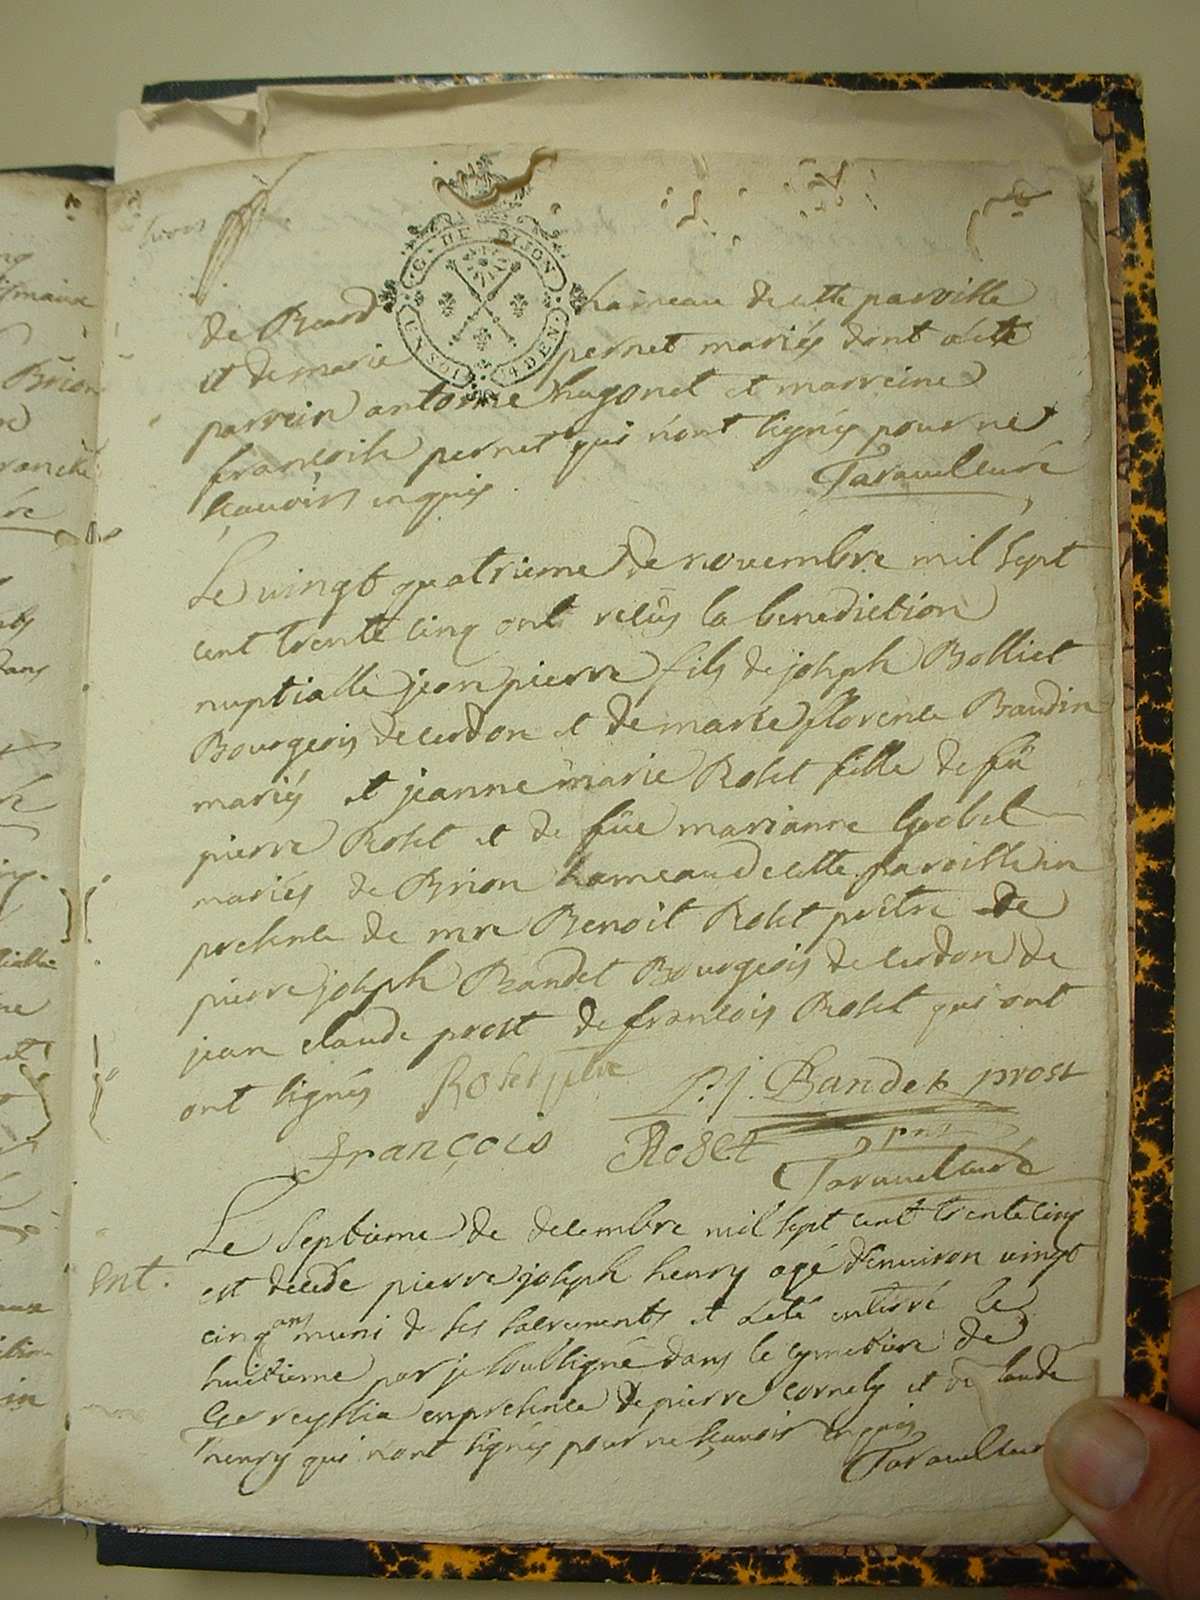 G. DE DIJON
UN SOL 4 DEN.
de Riard hameau de cette paroisse
et de marie pernet mariés dont a été
parrein antoine hugonet et marreine
francoise pernet qui n'ont signés pour ne
scavoirs enquis. Taravel curé
Le vingt quatrieme de novembre mil sept
cent trente cinq ont recûs la benediction
nuptialle jean pierre fils de joseph Bolliet
Bourgeois de cerdon et de marie florence Baudin
mariés et jeanne marie Roset fille de fû
pierre Roset et de füe marianne goebel
mariés de Brion hameau de cette paroisse in
presence de mre Benoit Roset prêtre de
pierre joseph Bandet Bourgeois de cerdon de
jean claude prost de francois Roset qui ont
ont signés Roset ptre P. j. Bandet prost
françois Roset pnt
Taravel curé
Le septieme de decembre mil sept cent trente cinq
ent. est decede pierre joseph henry agé d'environ vingt
cinq ans muni de ses sacrements et a été enterré le
huitieme par je soussigné dans le cymetiere de
Ger en presence de pierre cornely et de claude
henry qui n'ont signés pour ne scavoir enquis
Taravel cur